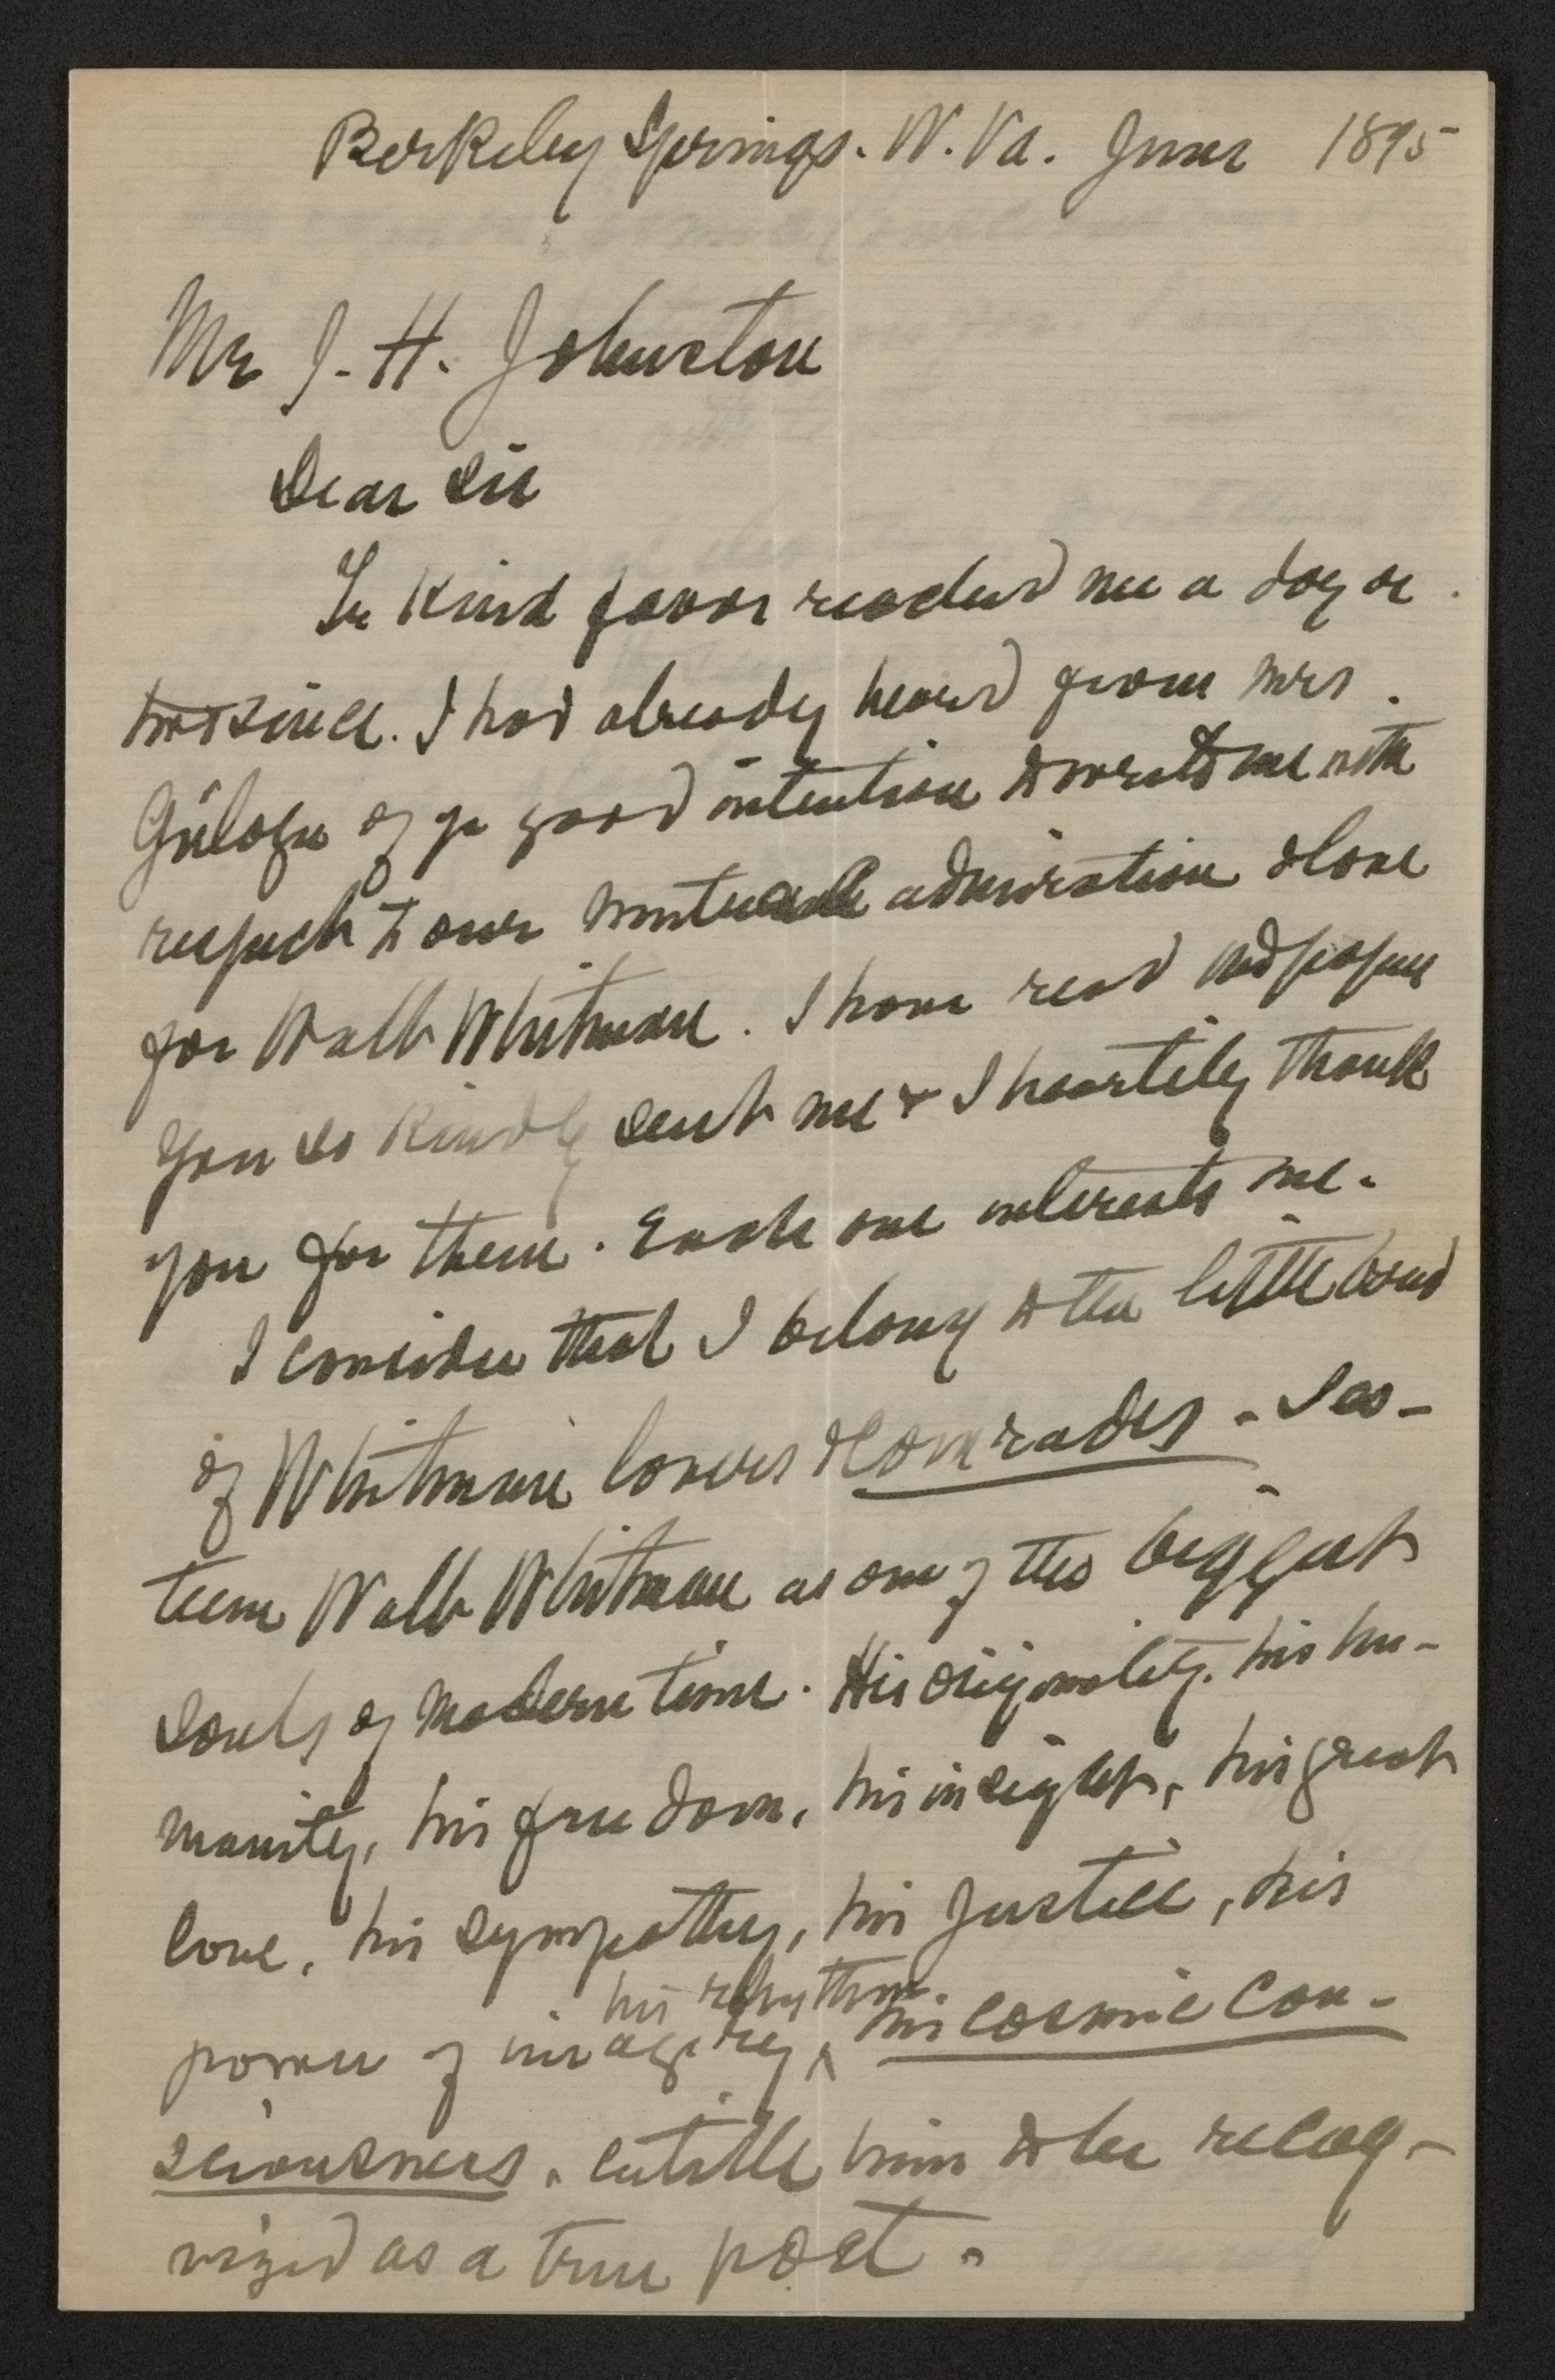 Berkeley Springs. W. Va. June 1895
Mr J. H. Johnston
Dear Sir
Yr kind favor reached me a day or
two since. I had already heard from Mrs.
of yr good intention to write me with
respect to our mutual admiration & love
for Walt Whitman. I have read papers
you so kindly sent me & I heartily thank
you for them. Each one interests me.
I consider that I belong to the little band
of Whitman lovers & Comrades - I es-
teem Walt Whitman as one of the biggest
souls of modern time. His originality, his hu-
manity, his freedom, his insight, his great
love, his sympathy, his justice, his
his rhythm
power of imagery, ^ his Cosmic Con-
sciousness, entitle him to be recog-
nized as a true poet.